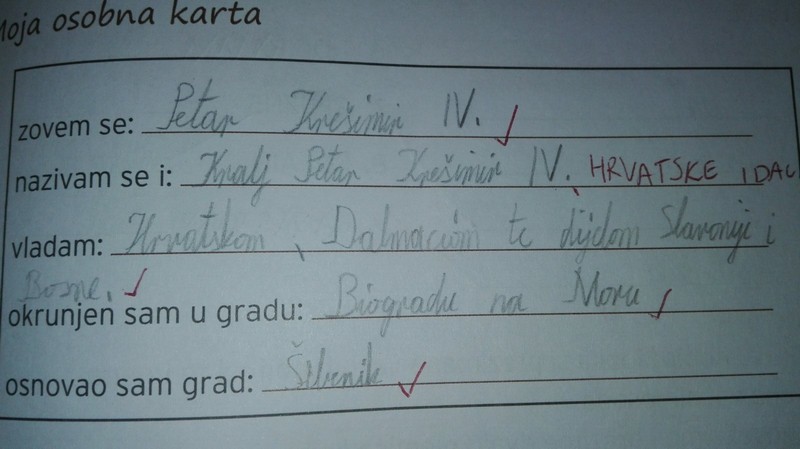 Moja osobna karta
zovem se: Petar Krešimir IV.
nazivam se i: Kralj Petar Krešimir IV. HRVATSKE I DAL
vladam: Hrvatskom, Dalmacijom te dijelom Slavonije i
Bosne.
okrunjen sam u gradu: Biogradu na Moru
osnovao sam grad: Šibenik